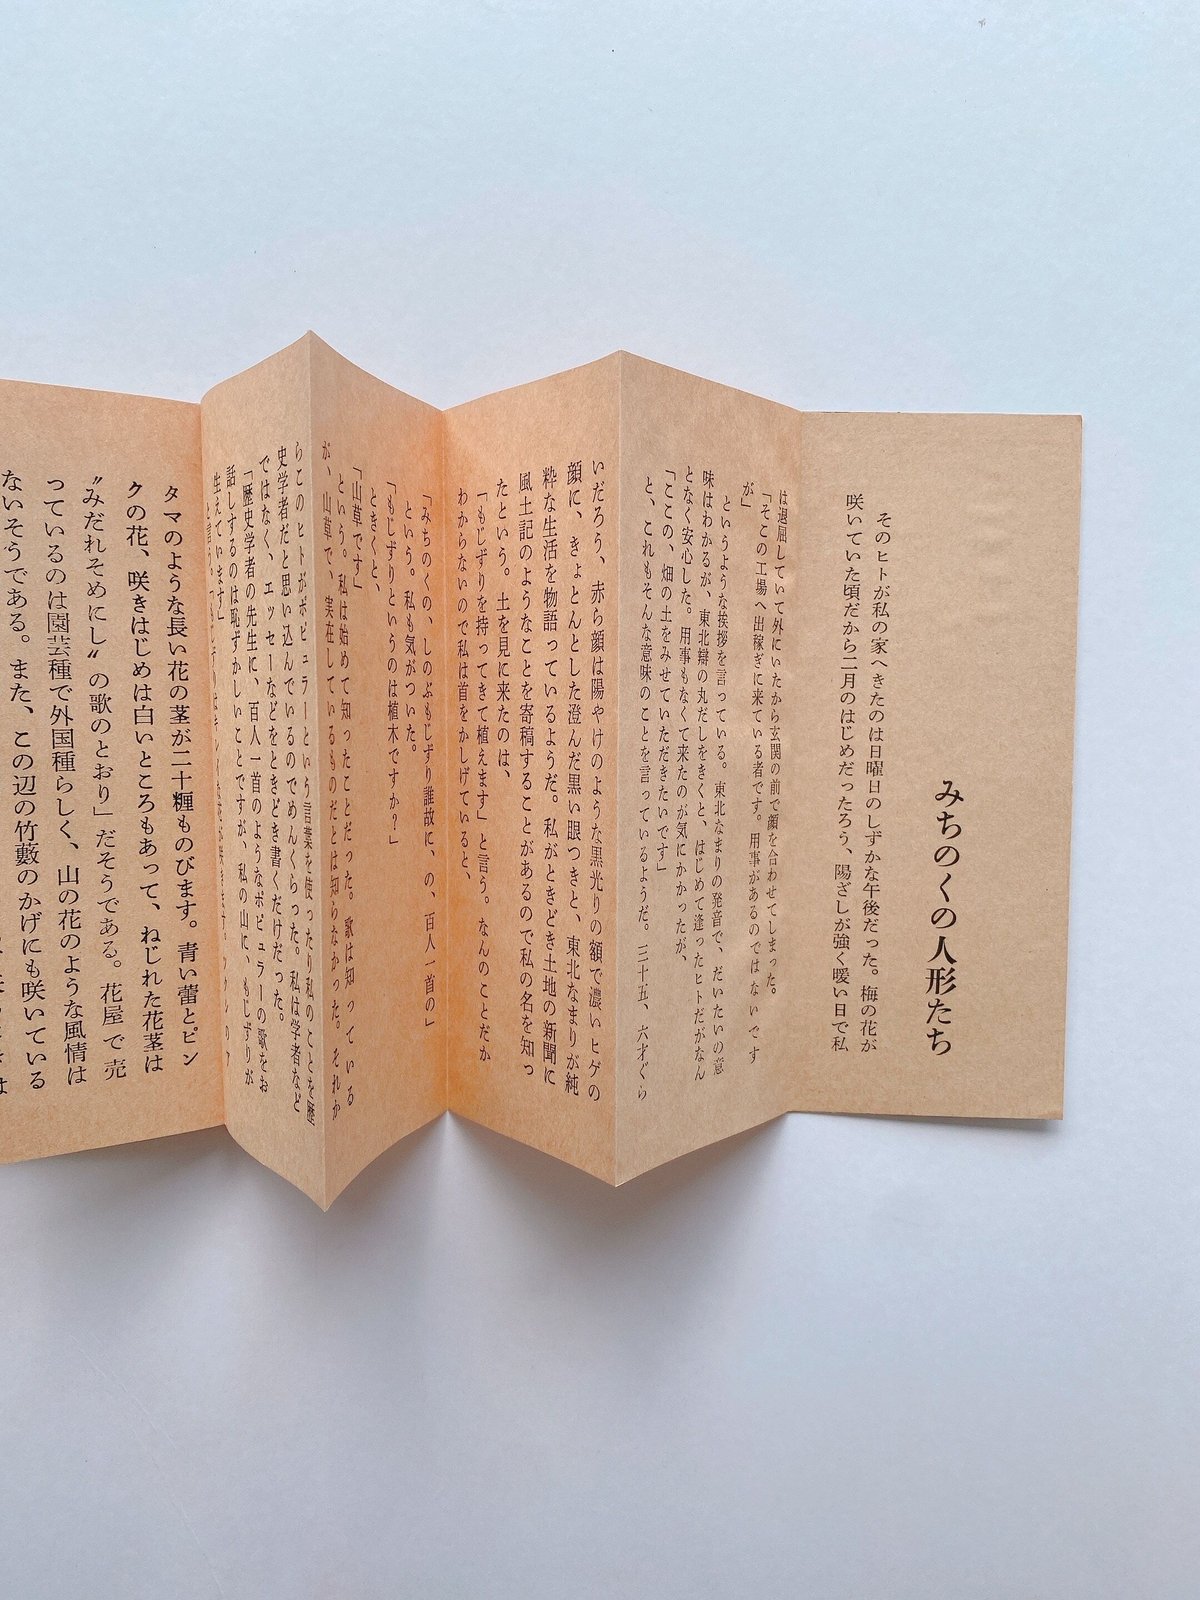 みちのくの人形たち
そのヒトが私の家へきたのは日曜日のしずかな午後だった。梅の花が
咲いていた頃だから二月のはじめだったろう、陽ざしが強く暖い日で私
は退屈していて外にいたから玄関の前で顔を合わせてしまった。
「そこの工場へ出稼ぎに来ている者です。用事があるのではないです
が」
というような挨拶を言っている。東北なまりの発音で、だいたいの意
味はわかるが、東北辯の丸だしをきくと、はじめて逢ったヒトだがなん
となく安心した。用事もなくて来たのが気にかかったが、
「ここの、畑の土をみせていただきたいです」
と、これもそんな意味のことを言っているようだ。三十五、六才ぐら
いだろう、赤ら顔は陽やけのような黒光りの額で濃いヒゲの
顔に、きょとんとした澄んだ黒い眼つきと、東北なまりが純
粋な生活を物語っているようだ。私がときどき土地の新聞に
風土記のようなことを寄稿することがあるので私の名を知っ
たという。土を見に来たのは、
「もじずりを持ってきて植えます」と言う。なんのことだか
わからないので私は首をかしげていると、
「みちのくの、しのぶもじずり誰故に、の、百人一首の」
という。私も気がついた。
「もじずりというのは植木ですか?」
ときくと、
「山草です」
という。私は始めて知ったことだった。歌は知っている
が、山草で、実在しているものだとは知らなかった。それか
らこのヒトがポピュラーという言葉を使ったり私のことを歴
史学者だと思い込んでいるのでめんくらった。私は学者など
ではなく、エッセーなどをときどき書くだけだった。
「歴史学者の先生に、百人一首のようなポピュラーの歌をお
話しするのは恥ずかしいことですが、私の山に、もじずりが
生えています」
と言う。
タマのような長い花の茎が二十糎ものびます。青い蕾とピン
クの花、咲きはじめは白いところもあって、ねじれた花茎は
〝みだれそめにし〟の歌のとおり」だそうである。花屋で売
っているのは園芸種で外国種らしく、山の花のような風情は
ないそうである。また、この辺の竹藪のかげにも咲いている